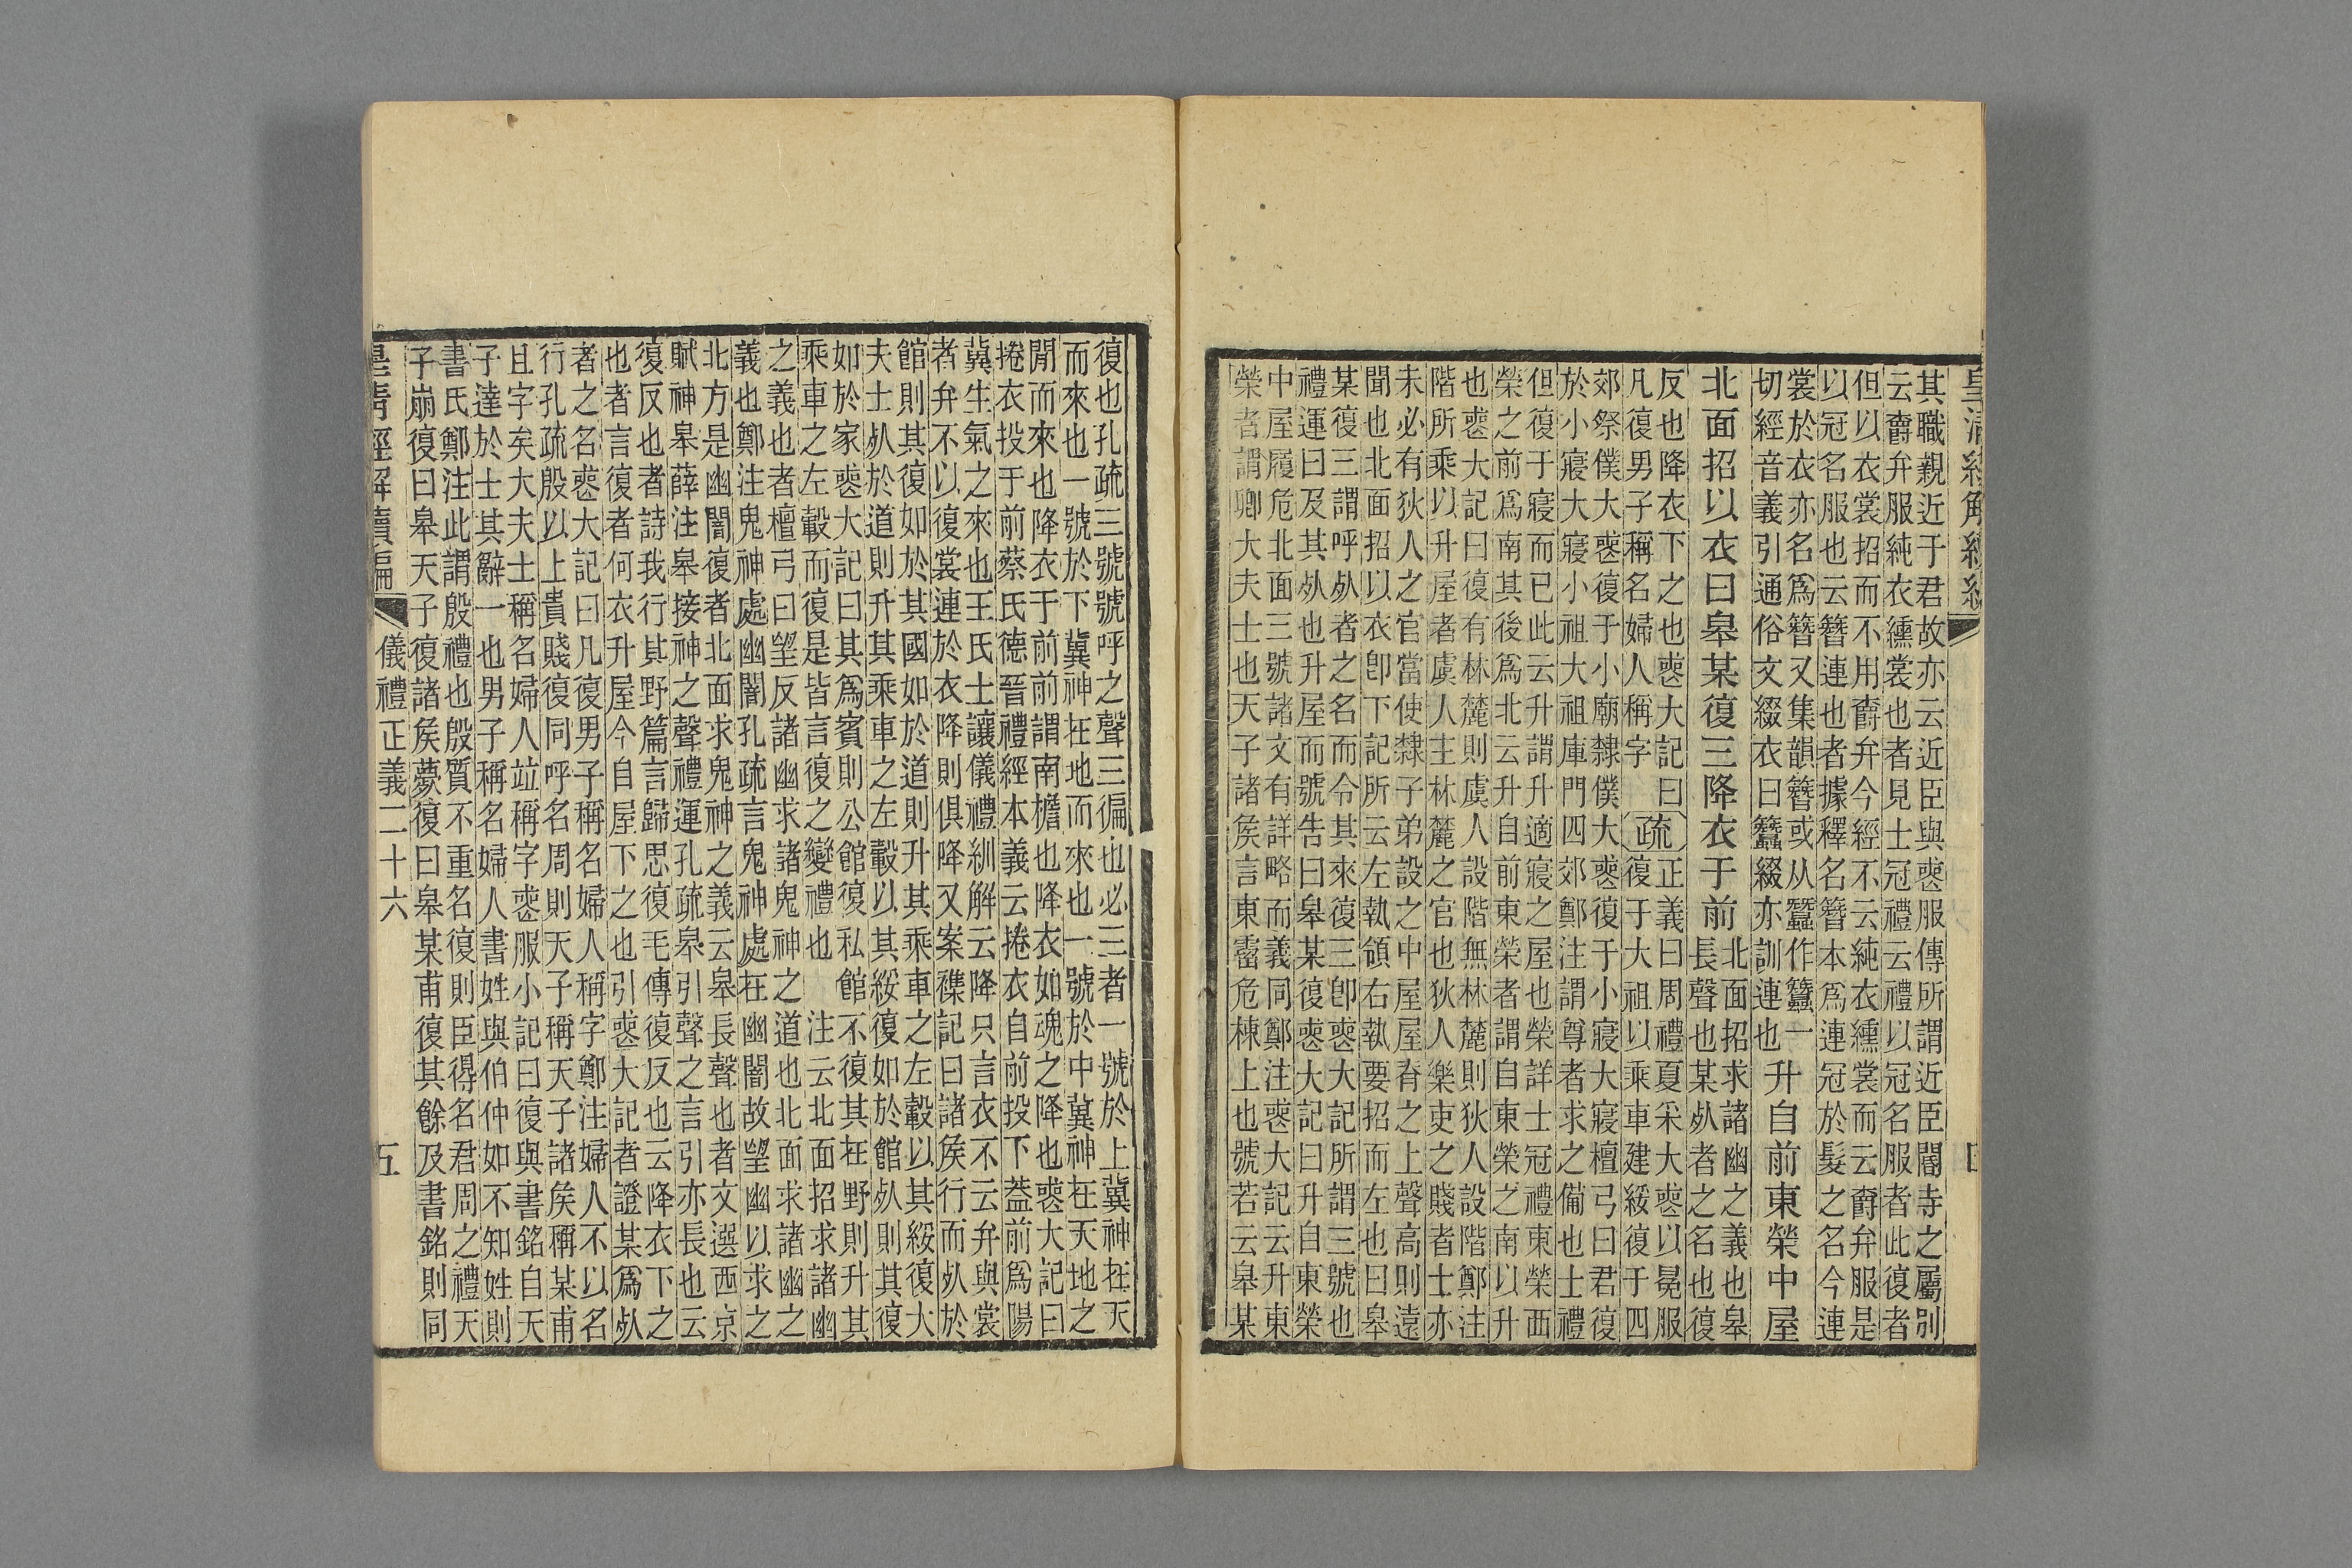 皇清經解續編
其職親近于君故亦云近臣與喪服傳所謂近臣閽寺之屬別
云爵弁服純衣纁裳也者見士冠禮云禮以冠名服者此復者
但以衣裳招而不用爵弁今經不云純衣纁裳而云爵弁服是
以冠名服也云簪連也者據釋名簪本爲連冠於髮之名今連
裳於衣亦名爲簪又集韻簪或从蠶作簪一
切經音義引通俗文綴衣曰蠶綴亦訓連也
升自前東榮中屋
北面招以衣曰皋某復三降衣于前
北面招求諸幽之義也皋
長聲也某死者之名也復
反也降衣下之也喪大記曰
凡復男子稱名婦人稱字
疏
正義曰周禮夏采大喪以冕服
復于大祖以乘車建綏復于四
郊祭僕大喪復于小廟隸僕大喪復于小寢大寢檀弓曰君復
於小寢大寢小祖大祖庫門四郊鄭注謂尊者求之備也士禮
但復于寢而已此云升謂升適寢之屋也榮詳士冠禮東榮西
榮之前爲南其後爲北云升自前東榮者謂自東榮之南以升
也喪大記曰復有林麓則虞人設階無林麓則狄人設階鄭注
階所乘以升屋者虞人主林麓之官也狄人樂吏之賤者士亦
未必有狄人之官當使隸子弟設之中屋屋脊之上聲高則遠
聞也北面招以衣卽下記所云左執領右執要招而左也曰皋
某復三謂呼死者之名而令其來復三卽喪大記所謂三號也
禮運曰及其死也升屋而號告曰皋某復喪大記曰升自東榮
中屋履危北面三號諸文有詳略而義同鄭注喪大記云升東
榮者謂卿大夫士也天子諸矦言東霤危棟上也號若云皋某
復也孔疏三號號呼之聲三徧也必三者一號於上冀神在天
而來也一號於下冀神在地而來也一號於中冀神在天地之
閒而來也降衣于前前謂南檐也降衣如魂之降也喪大記曰
捲衣投于前蔡氏德晉禮經本義云捲衣自前投下葢前爲陽
冀生氣之來也王氏士讓儀禮紃解云降只言衣不云弁與裳
者弁不以復裳連於衣降則俱降又案襍記曰諸矦行而死於
館則其復如於其國如於道則升其乘車之左轂以其綏復大
夫士死於道則升其乘車之左轂以其綏復如於館死則其復
如於家喪大記曰其爲賓則公館復私館不復其在野則升其
乘車之左轂而復是皆言復之變禮也　注云北面招求諸幽
之義也者檀弓曰望反諸幽求諸鬼神之道也北面求諸幽之
義也鄭注鬼神處幽闇孔疏言鬼神處在幽闇故望幽以求之
北方是幽闇復者北面求鬼神之義云皋長聲也者文選西京
賦神皋薛注皋接神之聲禮運孔疏皋引聲之言引亦長也云
復反也者詩我行其野篇言歸思復毛傳復反也云降衣下之
也者言復者何衣升屋今自屋下之也引喪大記者證某爲死
者之名喪大記曰凡復男子稱名婦人稱字鄭注婦人不以名
行孔疏殷以上貴賤復同呼名周則天子稱天子諸矦稱某甫
且字矣大夫士稱名婦人竝稱字喪服小記曰復與書銘自天
子達於士其辭一也男子稱名婦人書姓與伯仲如不知姓則
書氏鄭注此謂殷禮也殷質不重名復則臣得名君周之禮天
子崩復曰皋天子復諸矦薨復曰皋某甫復其餘及書銘則同
皇清經解續編　儀禮正義二十六　五